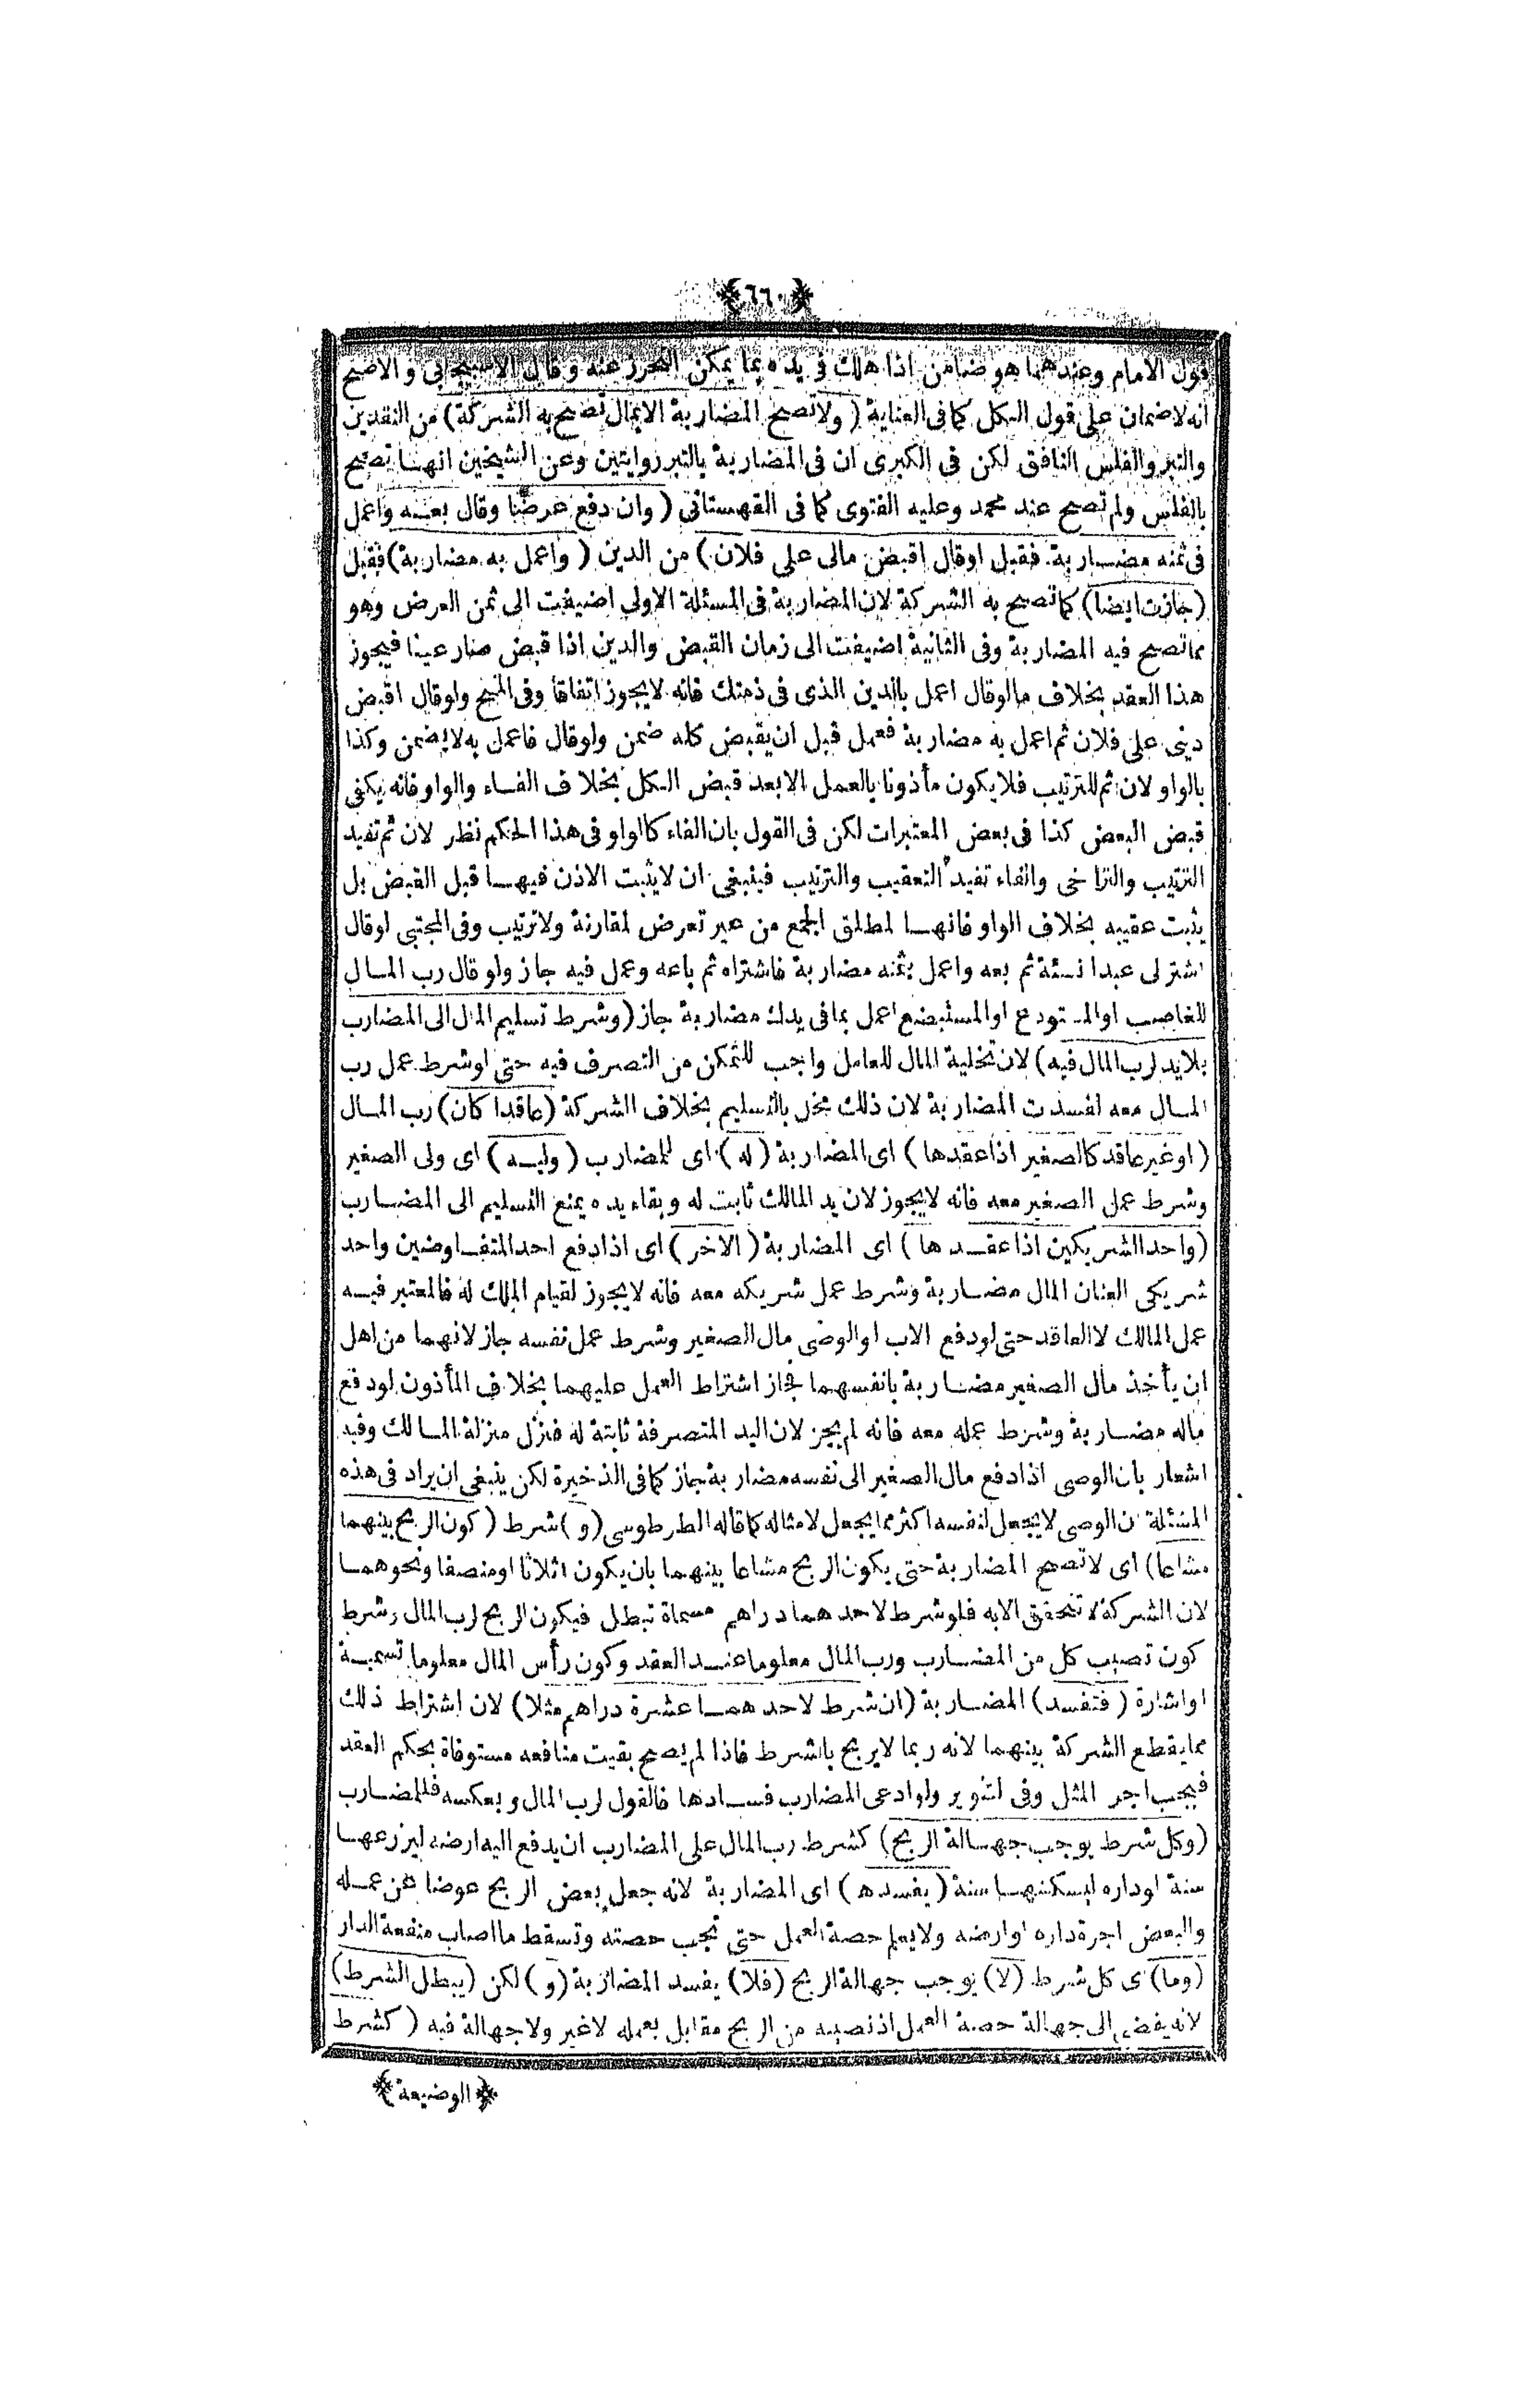 ﴿٦٦٠﴾
قول الامام وعندهما هو ضامن اذا هلك فى يده بما يمكن التحرز عنه وقال الاسبيجابى والاصح
انه لا ضمان على قول الكل كما فى العناية ( ولا تصح المضاربة الا بمال تصح به الشركة ) من النقدين
والتبر والفلس النافق لكن فى الكبرى ان فى المضاربة بالتبر روايتين وعن الشيخين انها تصح
بالفلس ولم تصح عند محمد وعليه الفتوى كما فى القهستانى ( وان دفع عرضا وقال بعه واعمل
فى ثمنه مضاربة فقبل اوقال اقبض مالى على فلان ) من الدين ( واعمل به مضاربة ) فقبل
( جازت ايضا ) كما تصح به الشركة لان المضاربة فى المسئلة الاولى اضيفت الى ثمن العرض وهو
مما تصح فيه المضاربة وفى الثانية اضيفت الى زمان القبض والدين اذا قبض صار عينا فيجوز
هذا العقد بخلاف مالوقال اعمل بالدين الذى فى ذمتك فانه لايجوز اتفاقا وفى المنح ولوقال اقبض
دينى على فلان ثم اعمل به مضاربة فعمل قبل ان يقبض كله ضمن ولوقال فاعمل به لا يضمن وكذا
بالواو لان ثم للترتيب فلا يكون مأذونا بالعمل الا بعد قبض الكل بخلاف الفاء والواو فانه يكفى
قبض البعض كذا فى بعض المعتبرات لكن فى القول بان الفاء كالواو فى هذا الحكم نظر لان ثم تفيد
الترتيب والتراخى والفاء تفيد التعقيب والترتيب فينبغى ان لا يثبت الاذن فيها قبل القبض بل
يثبت عقيبه بخلاف الواو فانها لمطلق الجمع من غير تعرض لمقارنة ولا ترتيب وفى المجتبى لوقال
اشتر لى عبدا نسئة ثم بعه واعمل بثمنه مضاربة فاشتراه ثم باعه وعمل فيه جاز ولو قال رب المال
للغاصب اوالمستودع اوالمستبضع اعمل بما فى يدك مضاربة جاز ( وشرط تسليم المال الى المضارب
بلايد لرب المال فيه ) لان تخلية المال للعامل واجب للتمكن من التصرف فيه حتى لوشرط عمل رب
المال معه لفسدت المضاربة لان ذلك مخل بالتسليم بخلاف الشركة ( عاقدا كان ) رب المال
( اوغير عاقد كالصغير اذا عقدها ) اى المضاربة ( له ) اى للمضارب ( وليه ) اى ولى الصغير
وشرط عمل الصغير معه فانه لايجوز لان يد المالك ثابت له وبقاء يده يمنع التسليم الى المضارب
( واحد الشريكين اذا عقدها ) اى المضاربة ( الاخر ) اى اذا دفع احد المتفاوضين واحد
شريكى العنان المال مضاربة وشرط عمل شريكه معه فانه لايجوز لقيام الملك له فالمعتبر فيه
عمل المالك لا العاقد حتى لودفع الاب اوالوصى مال الصغير وشرط عمل نفسه جاز لانهما من اهل
ان يأخذ مال الصغير مضاربة بانفسهما فجاز اشتراط العمل عليهما بخلاف المأذون لودفع
ماله مضاربة وشرط عمله معه فانه لم يجز لان اليد المتصرفة ثابتة له فنزل منزلة المالك وفيه
اشعار بان الوصى اذا دفع مال الصغير الى نفسه مضاربة جاز كما فى الذخيرة لكن ينبغى ان يراد فى هذه
المسئلة ان الوصى لايجعل لنفسه اكثر مما يجعل لامثاله كما قاله الطرطوسى ( و ) شرط ( كون الربح بينهما
مشاعا ) اى لا تصح المضاربة حتى يكون الربح مشاعا بينهما بان يكون اثلاثا او منصفا ونحوهما
لان الشركة لا تتحقق الا به فلوشرط لاحدهما دراهم مسماة تبطل فيكون الربح لرب المال وشرط
كون نصيب كل من المضارب ورب المال معلوما عند العقد وكون رأس المال معلوما تسمية
اواشارة ( فتفسد ) المضاربة ( ان شرط لاحدهما عشرة دراهم مثلا ) لان اشتراط ذلك
مما يقطع الشركة بينهما لانه ربما لايربح بالشرط فاذا لم يصح بقيت منافعه مستوفاة بحكم العقد
فيجب اجر المثل وفى التنوير ولو ادعى المضارب فسادها فالقول لرب المال وبعكسه فللمضارب
( وكل شرط يوجب جهالة الربح ) كشرط رب المال على المضارب ان يدفع اليه ارضه ليزرعها
سنة اوداره ليسكنها سنة ( يفسدها ) اى المضاربة لانه جعل بعض الربح عوضا عن عمله
والبعض اجرة داره اوارضه ولا يعلم حصة العمل حتى تجب حصته وتسقط ما اصاب منفعة الدار
( وما ) اى كل شرط ( لا ) يوجب جهالة الربح ( فلا ) يفسد المضاربة ( و ) لكن ( يبطل الشرط )
لانه يفضى الى جهالة حصة العمل اذ نصيبه من الربح مقابل بعمله لاغير ولا جهالة فيه ( كشرط
﴿ الوضيعة ﴾